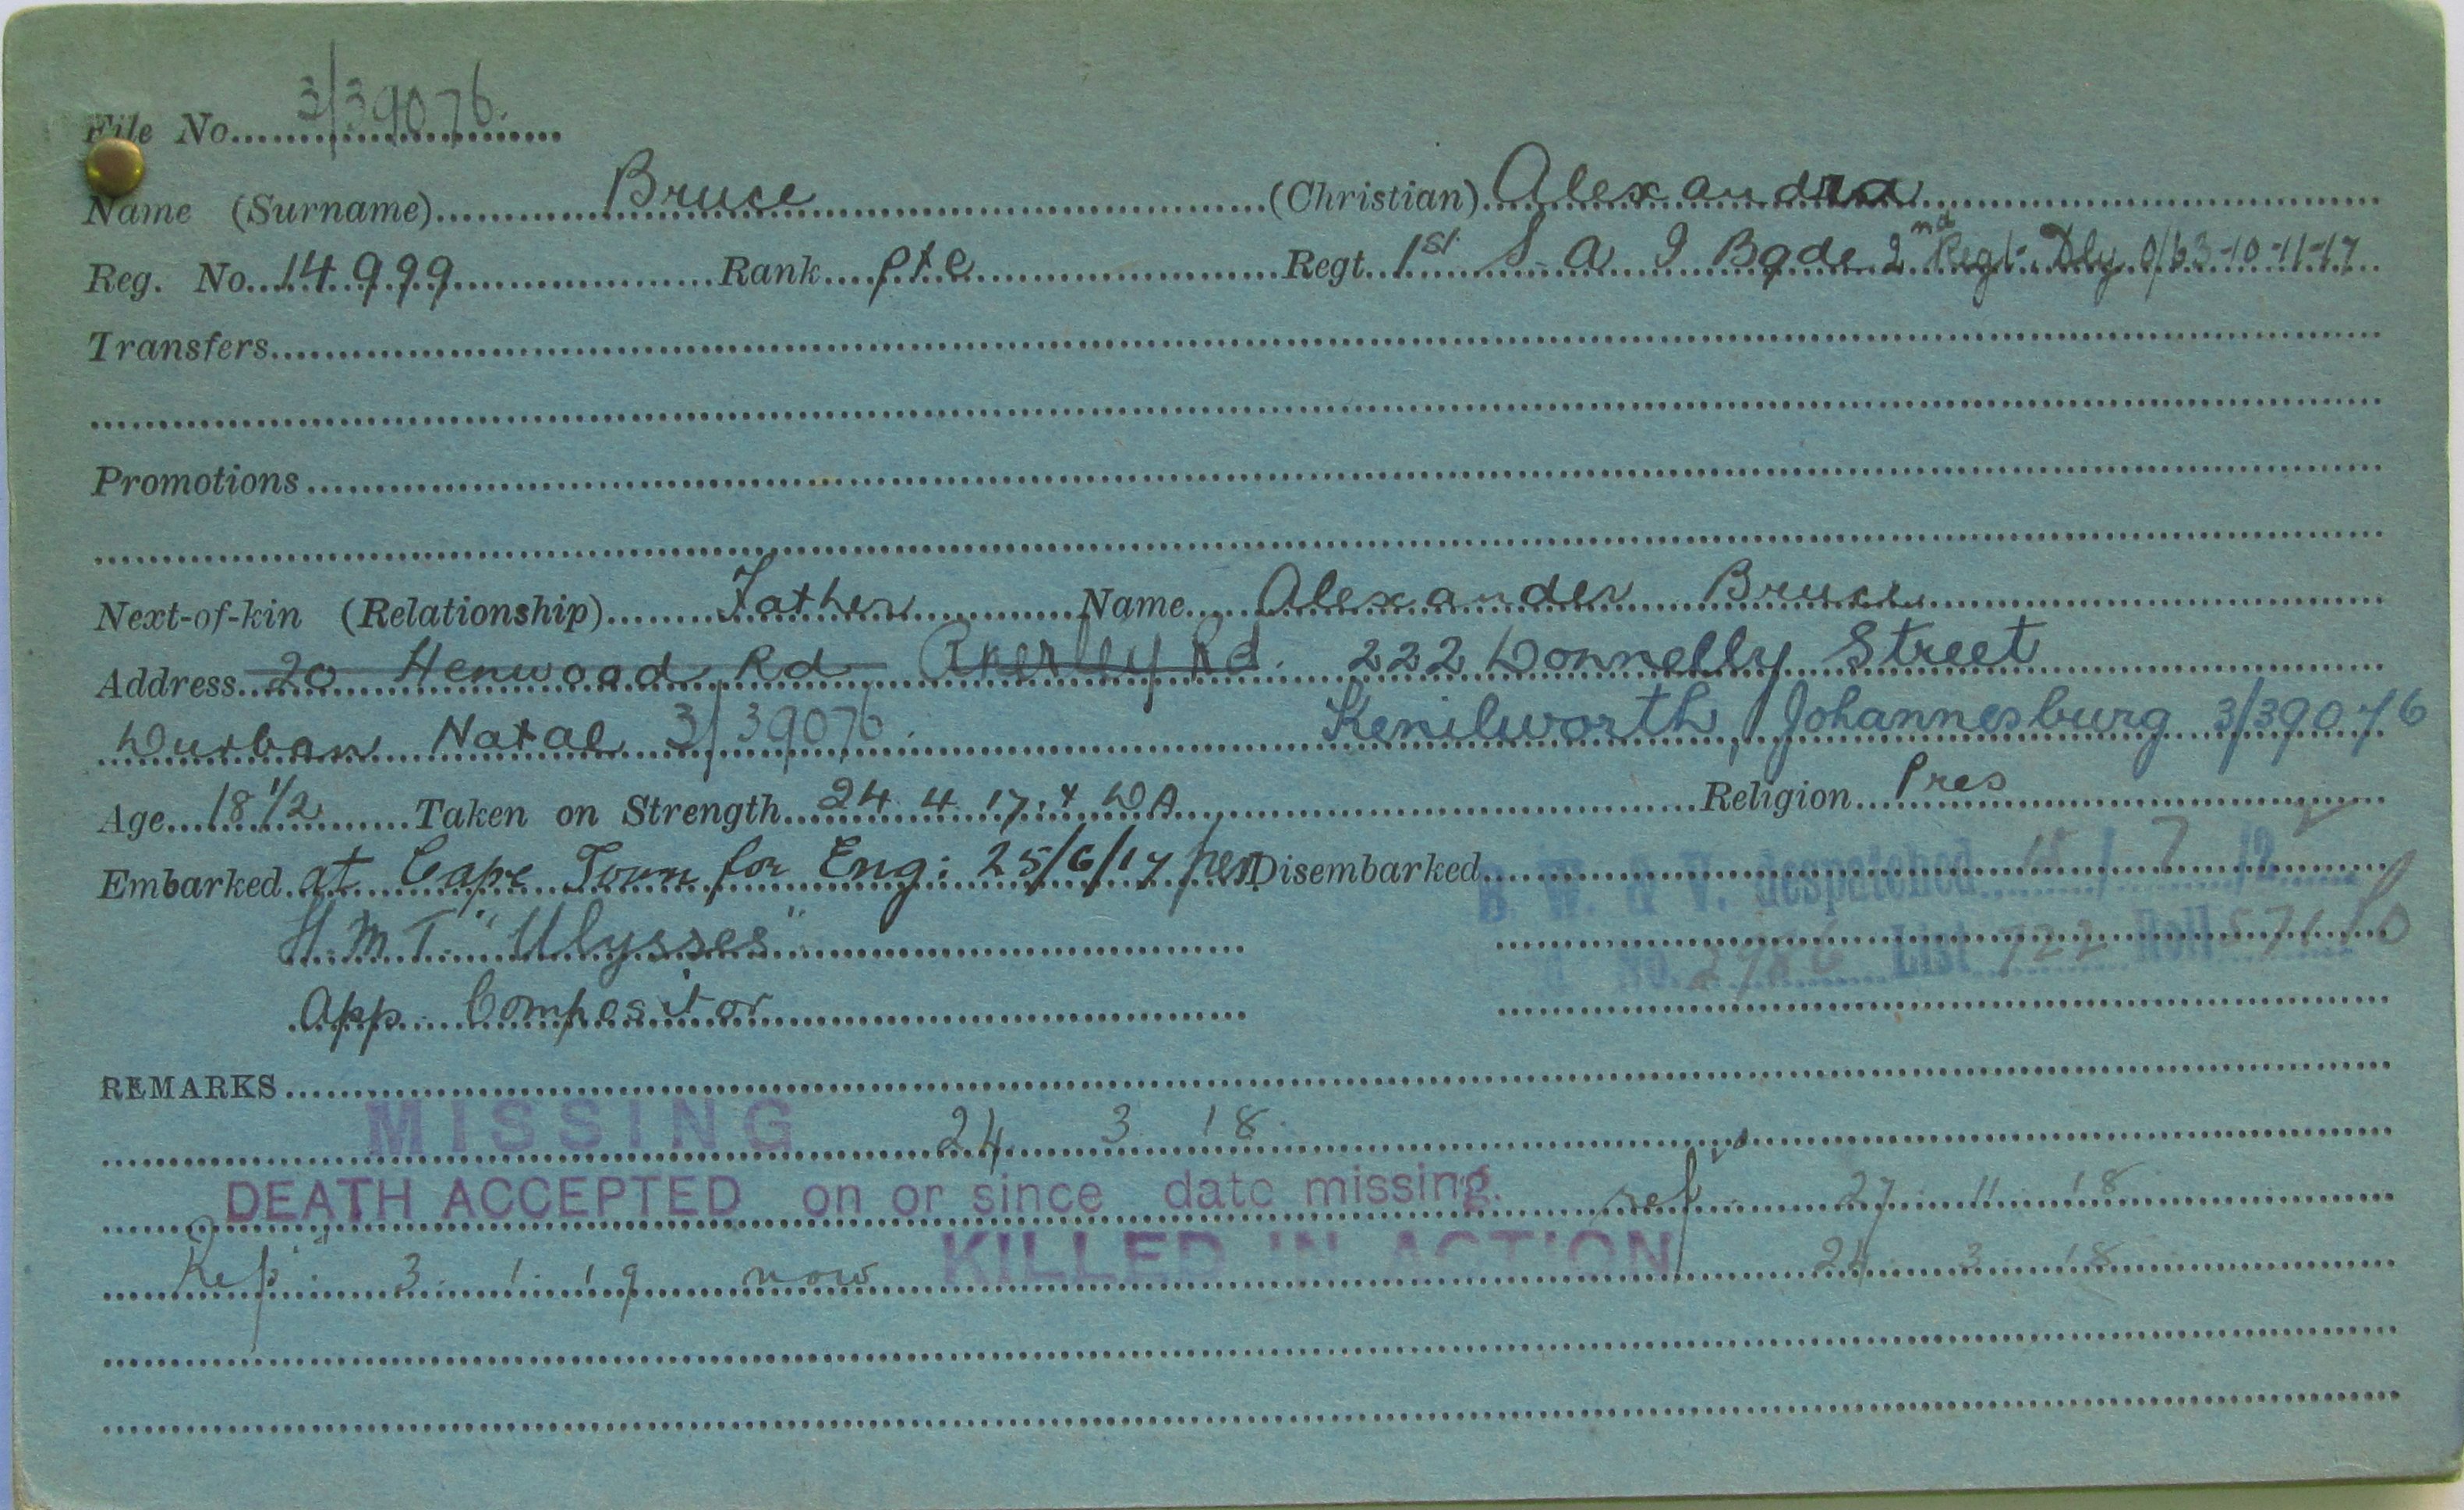 File No. 3/39076.
Name (Surname) Bruce (Christian) Alexandra
Reg. No. 14999 Rank pte Regt. 1st S. A I Bgde 2nd Regt. Dly O/63-10-11-17
Transfers
Promotions
Next-of-kin (Relationship) Father Name Alexander Bruce
Address 20 Henwood Rd Rd. 222 Donnelly Street
Durban Natal 3/39076. Kenilworth, Johannesburg 3/39076
Age 18 1/2 Taken on Strength 24. 4. 17. Religion Pres
Embarked at Cape Town for Eng: 25/6/17 per Disembarked
B. W. & V. despatched
H.M.T. "Ulysses"
No. 2986 List 722 Roll
App. Compositor
REMARKS
MISSING 24 3 18.
DEATH ACCEPTED on or since date missing. rep. 27. 11. 18
Rep. 3. 1. 19 now KILLED IN ACTION 24. 3. 18